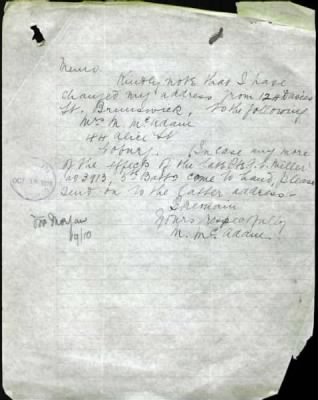 Memo
Kindly note that I have
changed my address from 124 Davies
St. Brunswick, to the following
Mrs M. McAdam
44 Alice St
Coburg. In case any more
of the effects of the late Pte G. L. Miller
No 3913, 5th Battn come to hand, please
send on to the latter address
I remain
Yours respectfully
M. McAdam
OCT
9/10